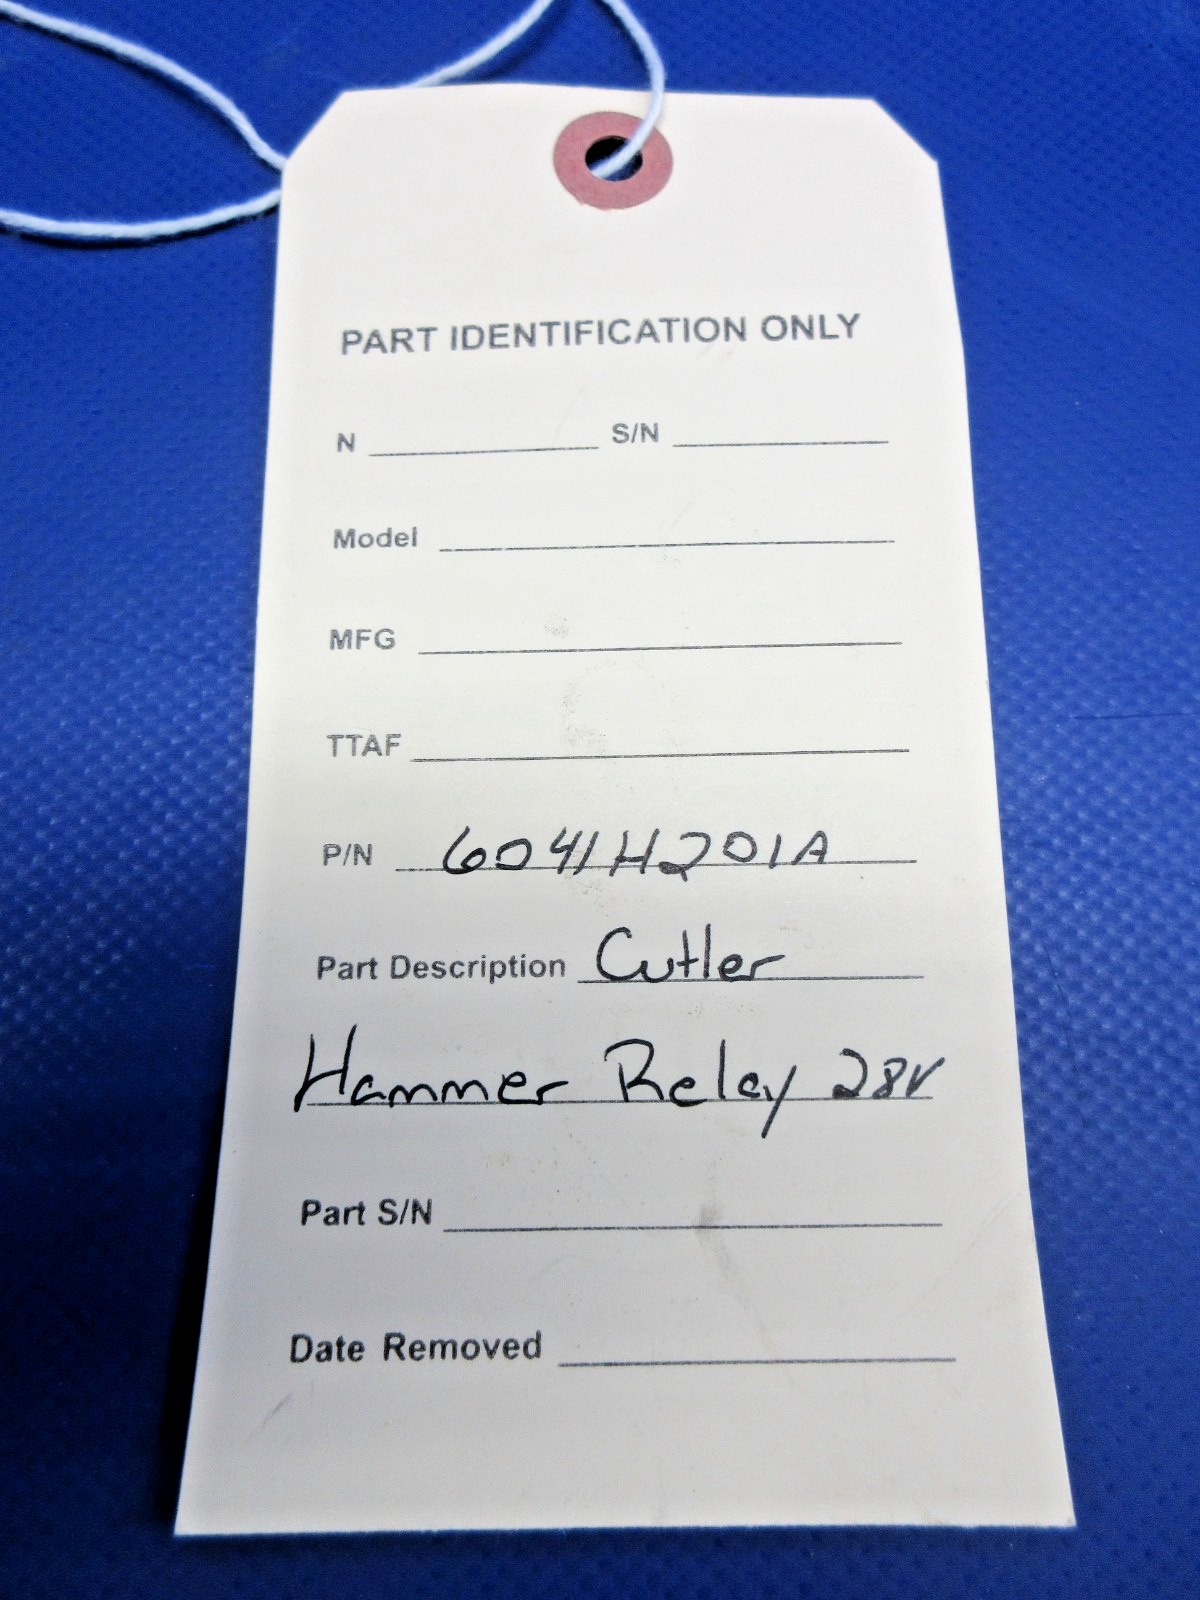 PART IDENTIFICATION ONLY
N S/N
Model
MFG
TTAF
P/N 6041H201A
Part Description Cutler
Hammer Relay 28V
Part S/N
Date Removed